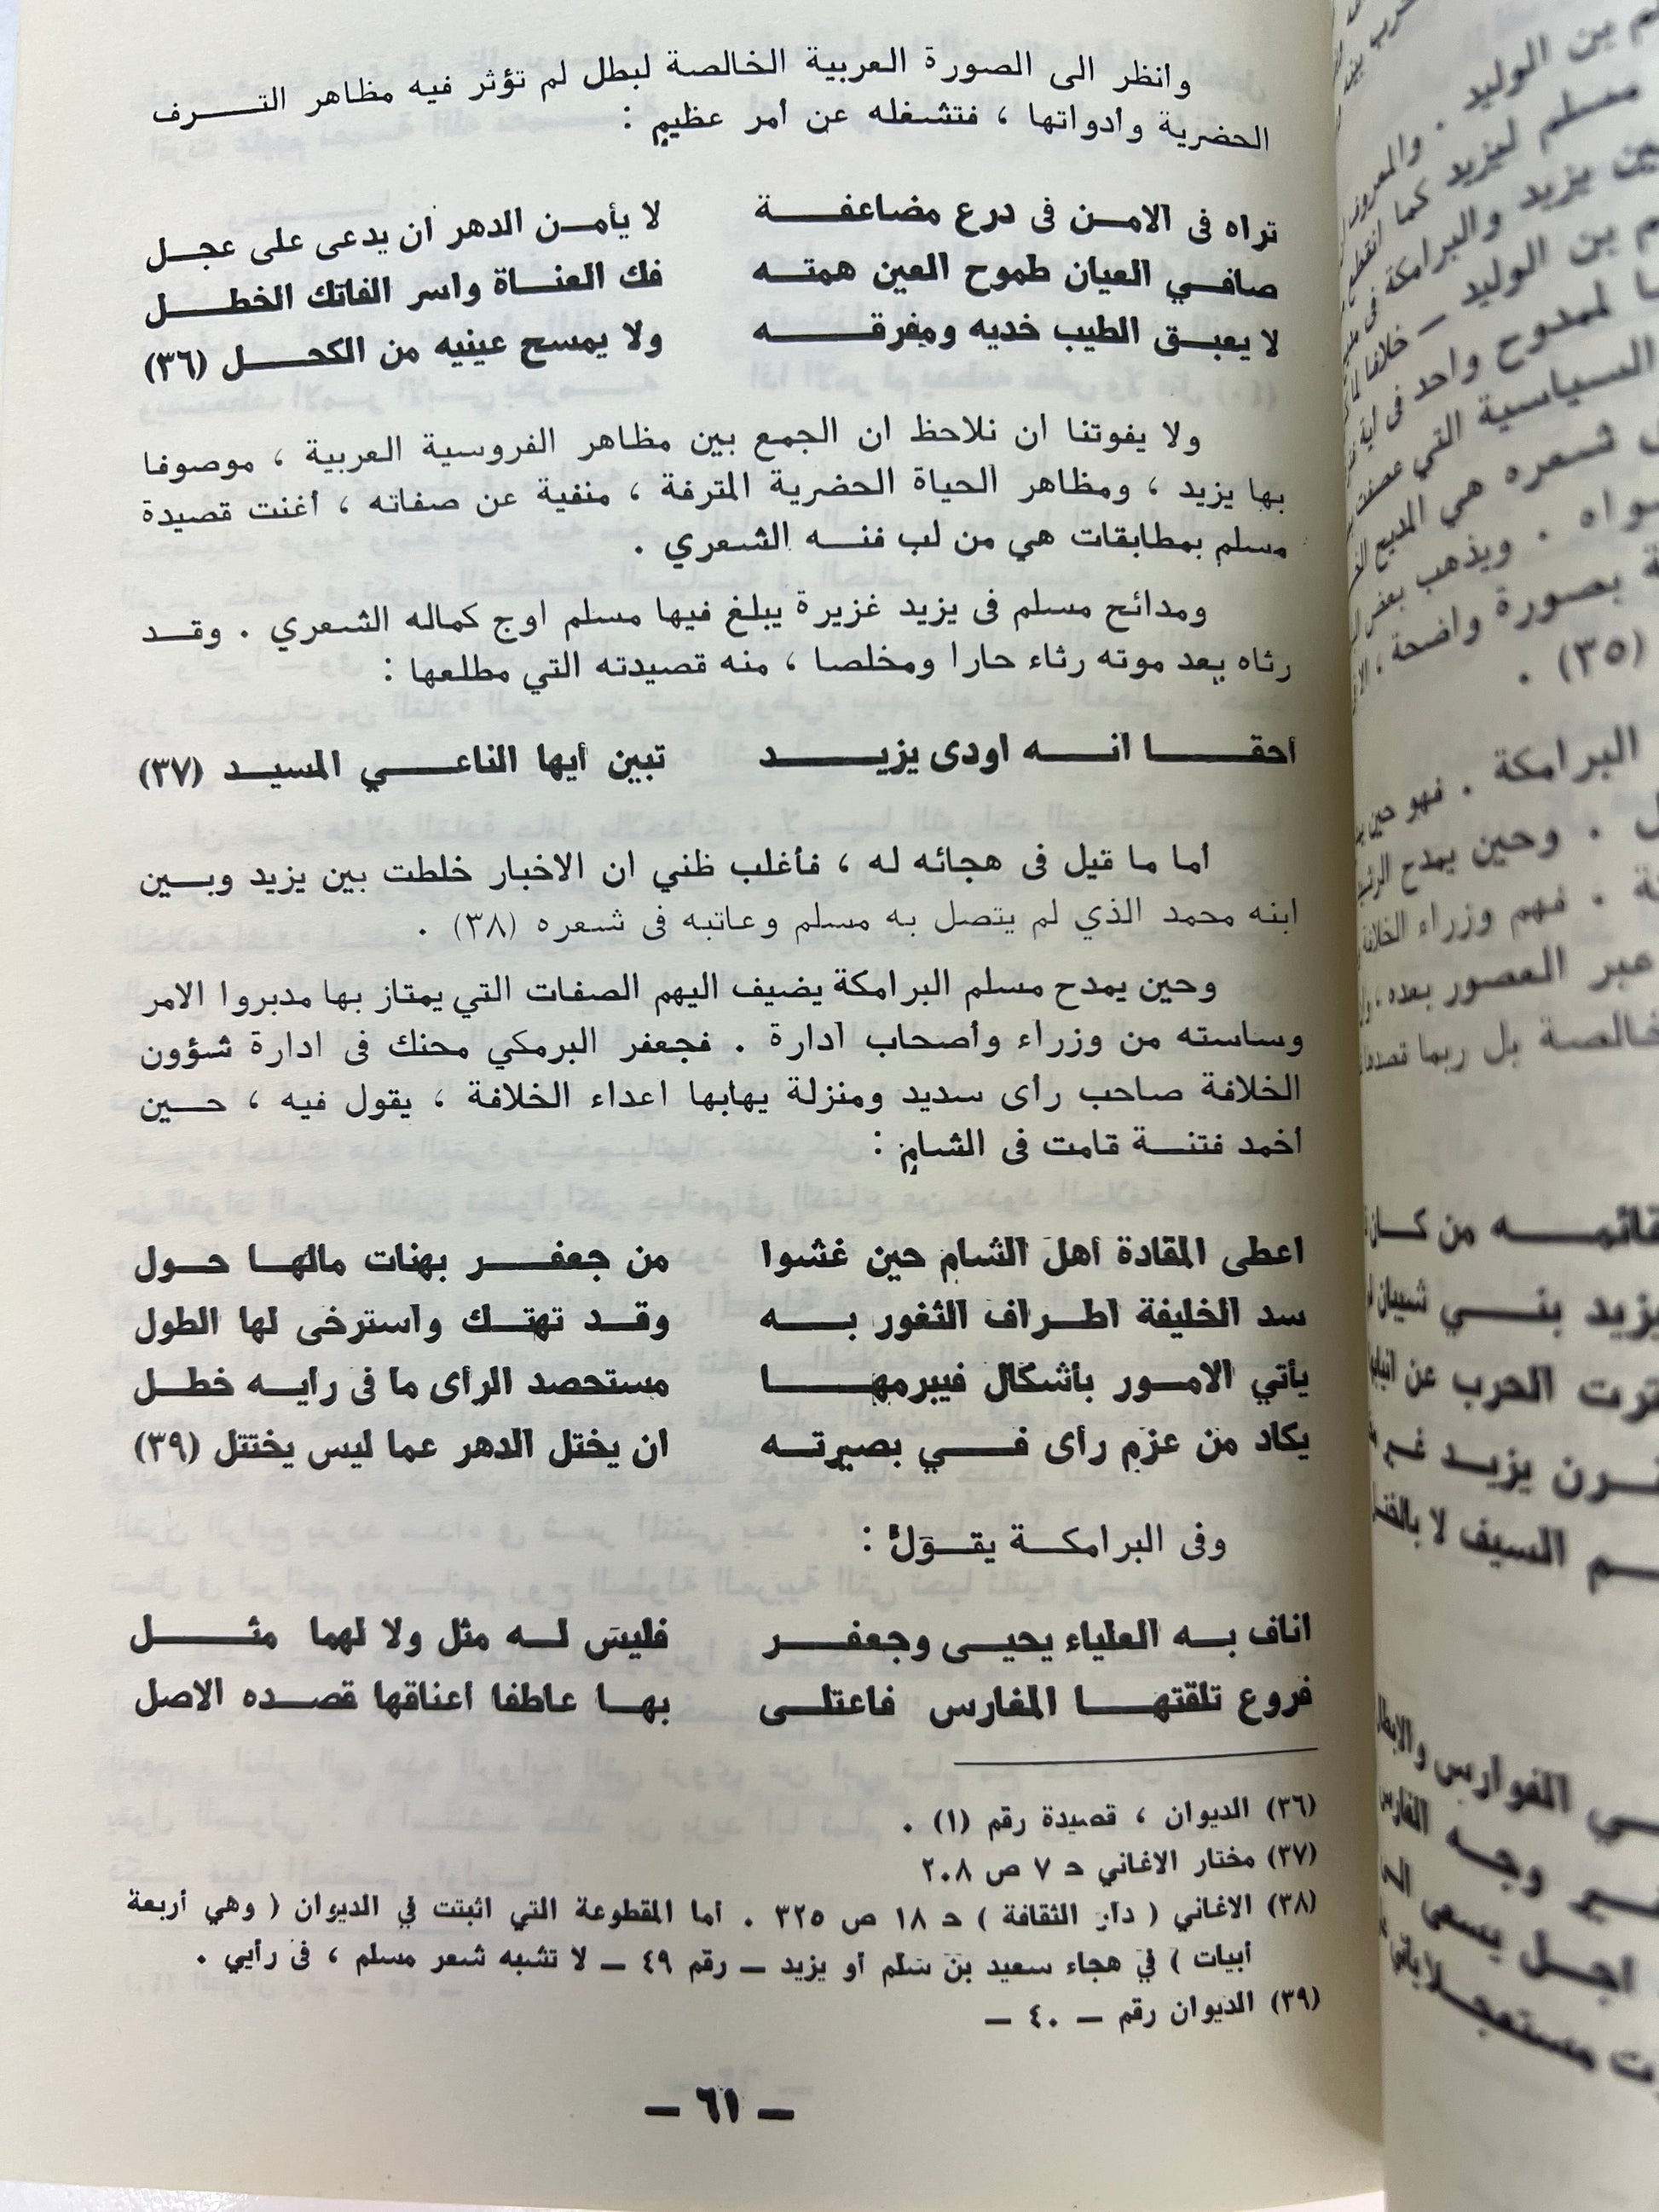 وانظر الى الصورة العربية الخالصة لبطل لم تؤثر فيه مظاهر الترف
الحضرية وأدواتها ، فتشغله عن أمر عظيم :
تراه فى الامن فى درع مضاعفة لا يأمن الدهر ان يدعى على عجل
صافي العيان طموح العين همته فك العناة واسر الفاتك الخطل
لا يعبق الطيب خديه ومفرقه ولا يمسح عينيه من الكحل (٣٦)
ولا يفوتنا ان نلاحظ ان الجمع بين مظاهر الفروسية العربية ، موصوفا
بها يزيد ، ومظاهر الحياة الحضرية المترفة ، منفية عن صفاته ، أغنت قصيدة
مسلم بمطابقات هي من لب فنه الشعري .
ومدائح مسلم فى يزيد غزيرة يبلغ فيها مسلم اوج كماله الشعري . وقد
رثاه بعد موته رثاء حارا ومخلصا ، منه قصيدته التي مطلعها :
أحقا انه اودى يزيد تبين أيها الناعي المسيد (٣٧)
أما ما قيل فى هجائه له ، فأغلب ظني ان الاخبار خلطت بين يزيد وبين
ابنه محمد الذي لم يتصل به مسلم وعاتبه فى شعره (٣٨) .
وحين يمدح مسلم البرامكة يضيف اليهم الصفات التي يمتاز بها مدبروا الامر
وساسته من وزراء وأصحاب ادارة . فجعفر البرمكي محنك فى ادارة شؤون
الخلافة صاحب رأى سديد ومنزلة يهابها اعداء الخلافة ، يقول فيه ، حين
أخمد فتنة قامت فى الشام :
اعطى المقادة أهل الشام حين غشوا من جعفر بهنات مالها حول
سد الخليفة اطراف الثغور به وقد تهتك واسترخى لها الطول
يأتي الامور بأشكال فيبرمها مستحصد الرأى ما فى رايه خطل
يكاد من عزم رأى في بصيرته ان يختل الدهر عما ليس يختتل (٣٩)
وفى البرامكة يقول :
اناف به العلياء يحيى وجعفر فليس له مثل ولا لهما مثل
فروع تلقتها المغارس فاعتلى بها عاطفا اعناقها قصده الاصل
(٣٦) الديوان ، قصيدة رقم (١) .
(٣٧) مختار الاغاني ح ٧ ص ٢٠٨
(٣٨) الاغاني ( دار الثقافة ) ح ١٨ ص ٣٢٥ . أما المقطوعة التي اثبتت في الديوان ( وهي أربعة
أبيات ) في هجاء سعيد بن سلم أو يزيد — رقم ٤٩ — لا تشبه شعر مسلم ، فى رأيي .
(٣٩) الديوان رقم — ٤٠ —
— ٦١ —
م بن الوليد . والمعروف
مسلم ليزيد كما انقطع
بين يزيد والبرامكة فى
م بن الوليد — خلافا لما
لممدوح واحد فى اية
السياسية التي عصفت
شعره هي المديح
سواه . ويذهب بعض
بصورة واضحة ،
(٣٥) .
البرامكة . فهو حين
. وحين يمدح
. فهم وزراء الخلافة
عبر العصور بعده ،
خالصة بل ربما
قائمه من كان
يزيد بني شيبان
الحرب عن
يزيد
السيف لا
الفوارس
وجه
اجل يسعى